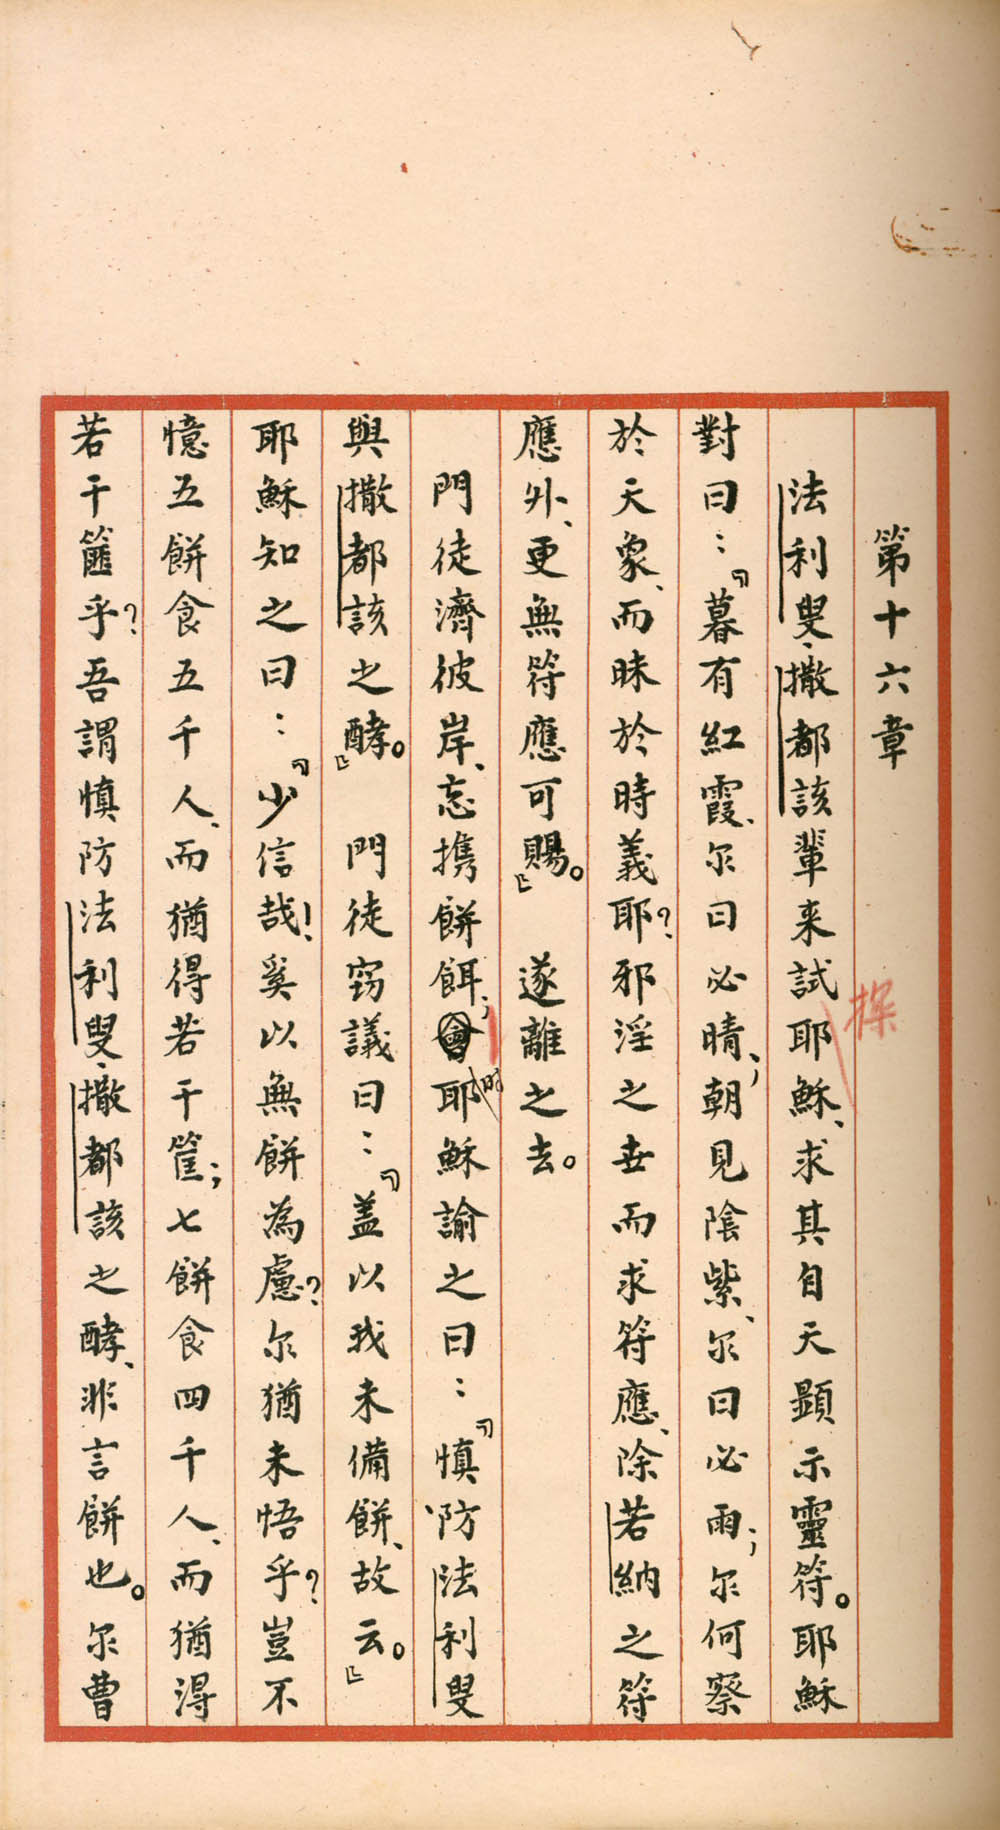 第十六章
法利叟、撒都該輩來試耶穌、求其自天顯示靈符。耶穌
探
對曰：『暮有紅霞、尔曰必晴；朝見陰紫、尔曰必雨；尔何察
於天象、而昧於時義耶？邪淫之世而求符應、除若納之符
應外、更無符應可賜。』遂離之去。
門徒濟彼岸、忘携餅餌；會耶穌諭之曰：『慎防法利叟
時
與撒都該之酵。』門徒窃議曰：『盖以我未備餅、故云。』
耶穌知之曰：『少信哉！奚以無餅為慮？尔猶未悟乎？豈不
憶五餅食五千人、而猶得若干筐；七餅食四千人、而猶得
若干籃乎？吾謂慎防法利叟、撒都該之酵、非言餅也。尔曹